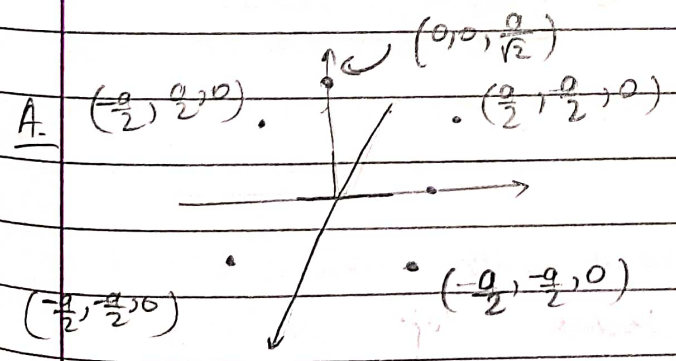 (0,0,a/√2)
A. (-a/2, a/2, 0) (a/2, -a/2, 0)
(-a/2, -a/2, 0) (-a/2, -a/2, 0)